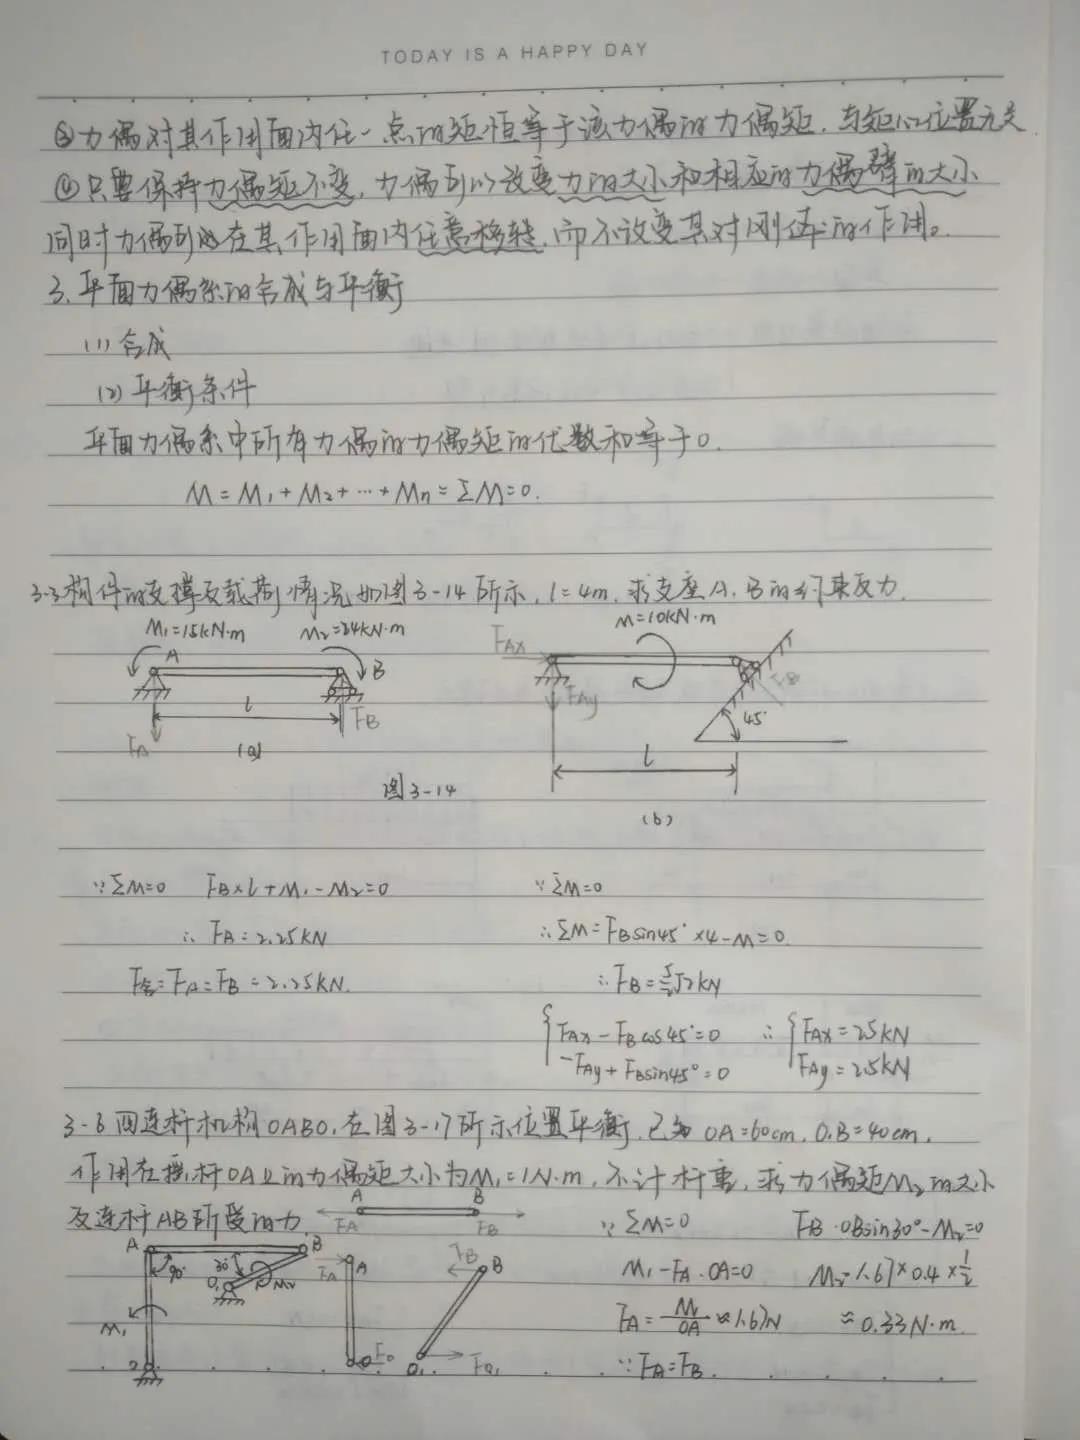 TODAY IS A HAPPY DAY
③力偶对其作用面内任一点的矩恒等于该力偶的力偶矩，与矩心位置无关
④只要保持力偶矩不变，力偶可以改变力的大小和相应的力偶臂的大小
同时力偶可以在其作用面内任意移转，而不改变其对刚体的作用。
3.平面力偶系的合成与平衡
(1)合成
(2)平衡条件
平面力偶系中所有力偶的力偶矩的代数和等于0.
M=M₁+M₂+…+Mn=ΣM=0.
3-3构件的支撑及载荷情况如图3-14所示，l=4m，求支座A、B的约束反力.
M₁=15kN·m M₂=24kN·m
A B
l
FA FB
(a)
M=10kN·m
FAx
FAy FB
45°
l
图3-14
(b)
∵ΣM=0 FB×l+M₁-M₂=0
∴FA=2.25KN
F合=FA=FB=2.25KN.
∵ΣM=0
∴ΣM=FBsin45°×4-M=0.
∴FB=5/2√2kN
FAx-FBcos45°=0
-FAy+FBsin45°=0
∴ FAx=2.5KN
FAy=2.5KN
3-6四连杆机构OABO，在图3-17所示位置平衡，已知OA=60cm,O₁B=40cm,
作用在摇杆OA上的力偶矩大小为M₁=1N·m，不计杆重，求力偶矩M₂的大小
及连杆AB所受的力
A B
FA FB
A B
90° 30°
O₁ M₂
M₁
O
FA A
O Fo
FB B
O₁ FO₁
∵ΣM=0 FB·OBsin30°-M₂=0
M₁-FA·OA=0 M₂=1.67×0.4×1/2
FA=M₁/OA≈1.67N ≈0.33N·m.
∵FA=FB.